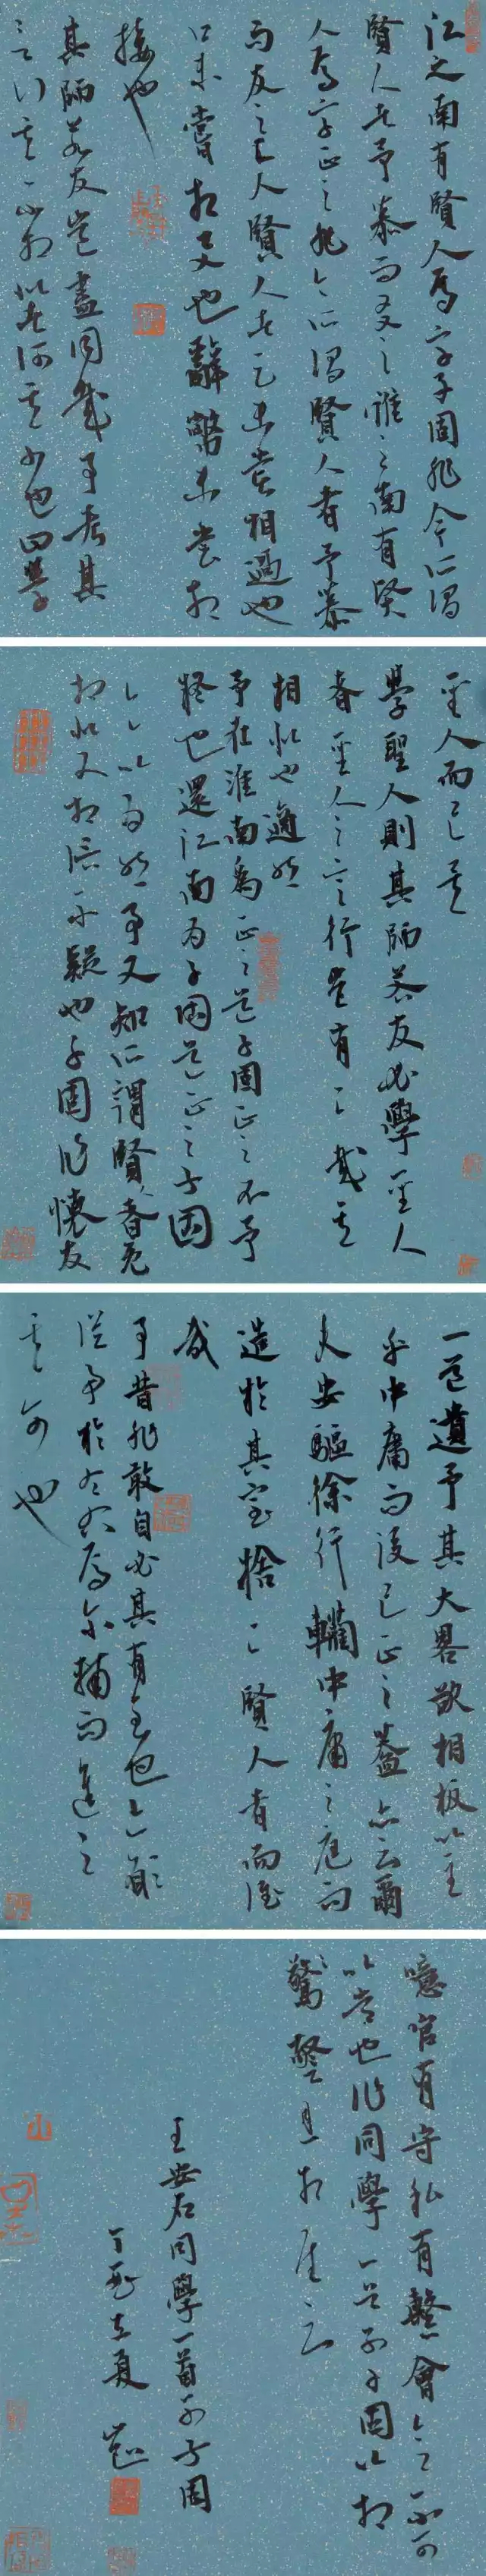 江之南有賢人焉字子固非今所謂
賢人者予慕而友之淮之南有賢
人焉字正之非今所謂賢人者予慕
而友之二人賢人者足未嘗相過也
口未嘗相語也辭幣未嘗相
接也
其師若友豈盡同哉予考其
言行其不相似者何其少也曰學
聖人而已矣
學聖人則其師若友必學聖人
者聖人之言行豈有二哉其
相似也適然
予在淮南為正之道子固正之不予
疑也還江南為子固道正之子固
亦以為然予又知所謂賢人者既
相似又相信不疑也子固作懷友
一首遺予其大畧欲相扳以至
乎中庸而後已正之蓋亦云爾
夫安驅徐行轥中庸之庭而
造於其室捨二賢人者而誰
哉
予昔非敢自必其有至也亦願
從事於左右焉爾輔而進之
其可也
噫官有守私有繫會合之不可
以常也作同學一首別子固以相
警且相慰云
王安石同學一首別子固
丁酉立夏